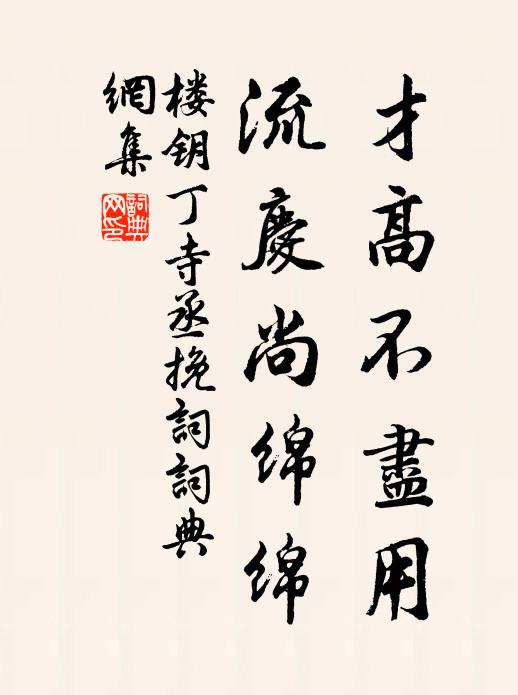 才高不盡用
流慶尚綿綿
楼钥丁寺丞挽詞詞典
網集
詞典網印